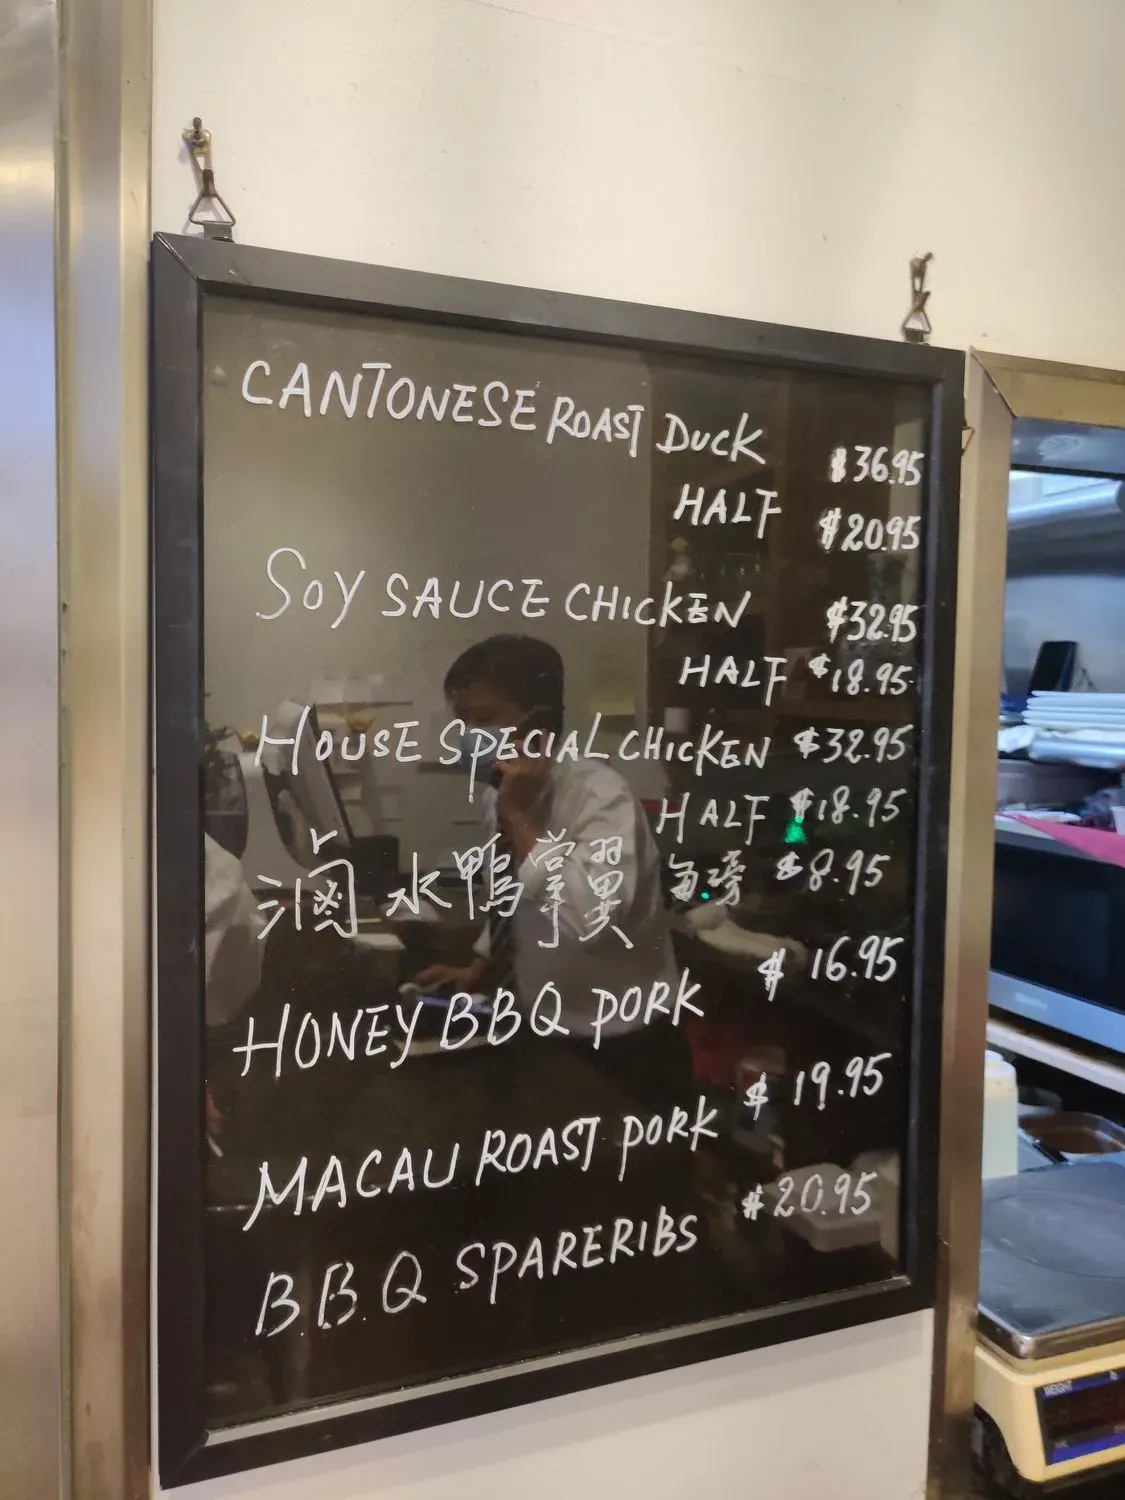 CANTONESE ROAST DUCK $36.95
HALF $20.95
SOY SAUCE CHICKEN $32.95
HALF $18.95
HOUSE SPECIAL CHICKEN $32.95
HALF $18.95
滷水鴨掌翼 每磅 $8.95
HONEY BBQ PORK $16.95
MACAU ROAST PORK $19.95
B.B.Q SPARERIBS $20.95
WEIGHT